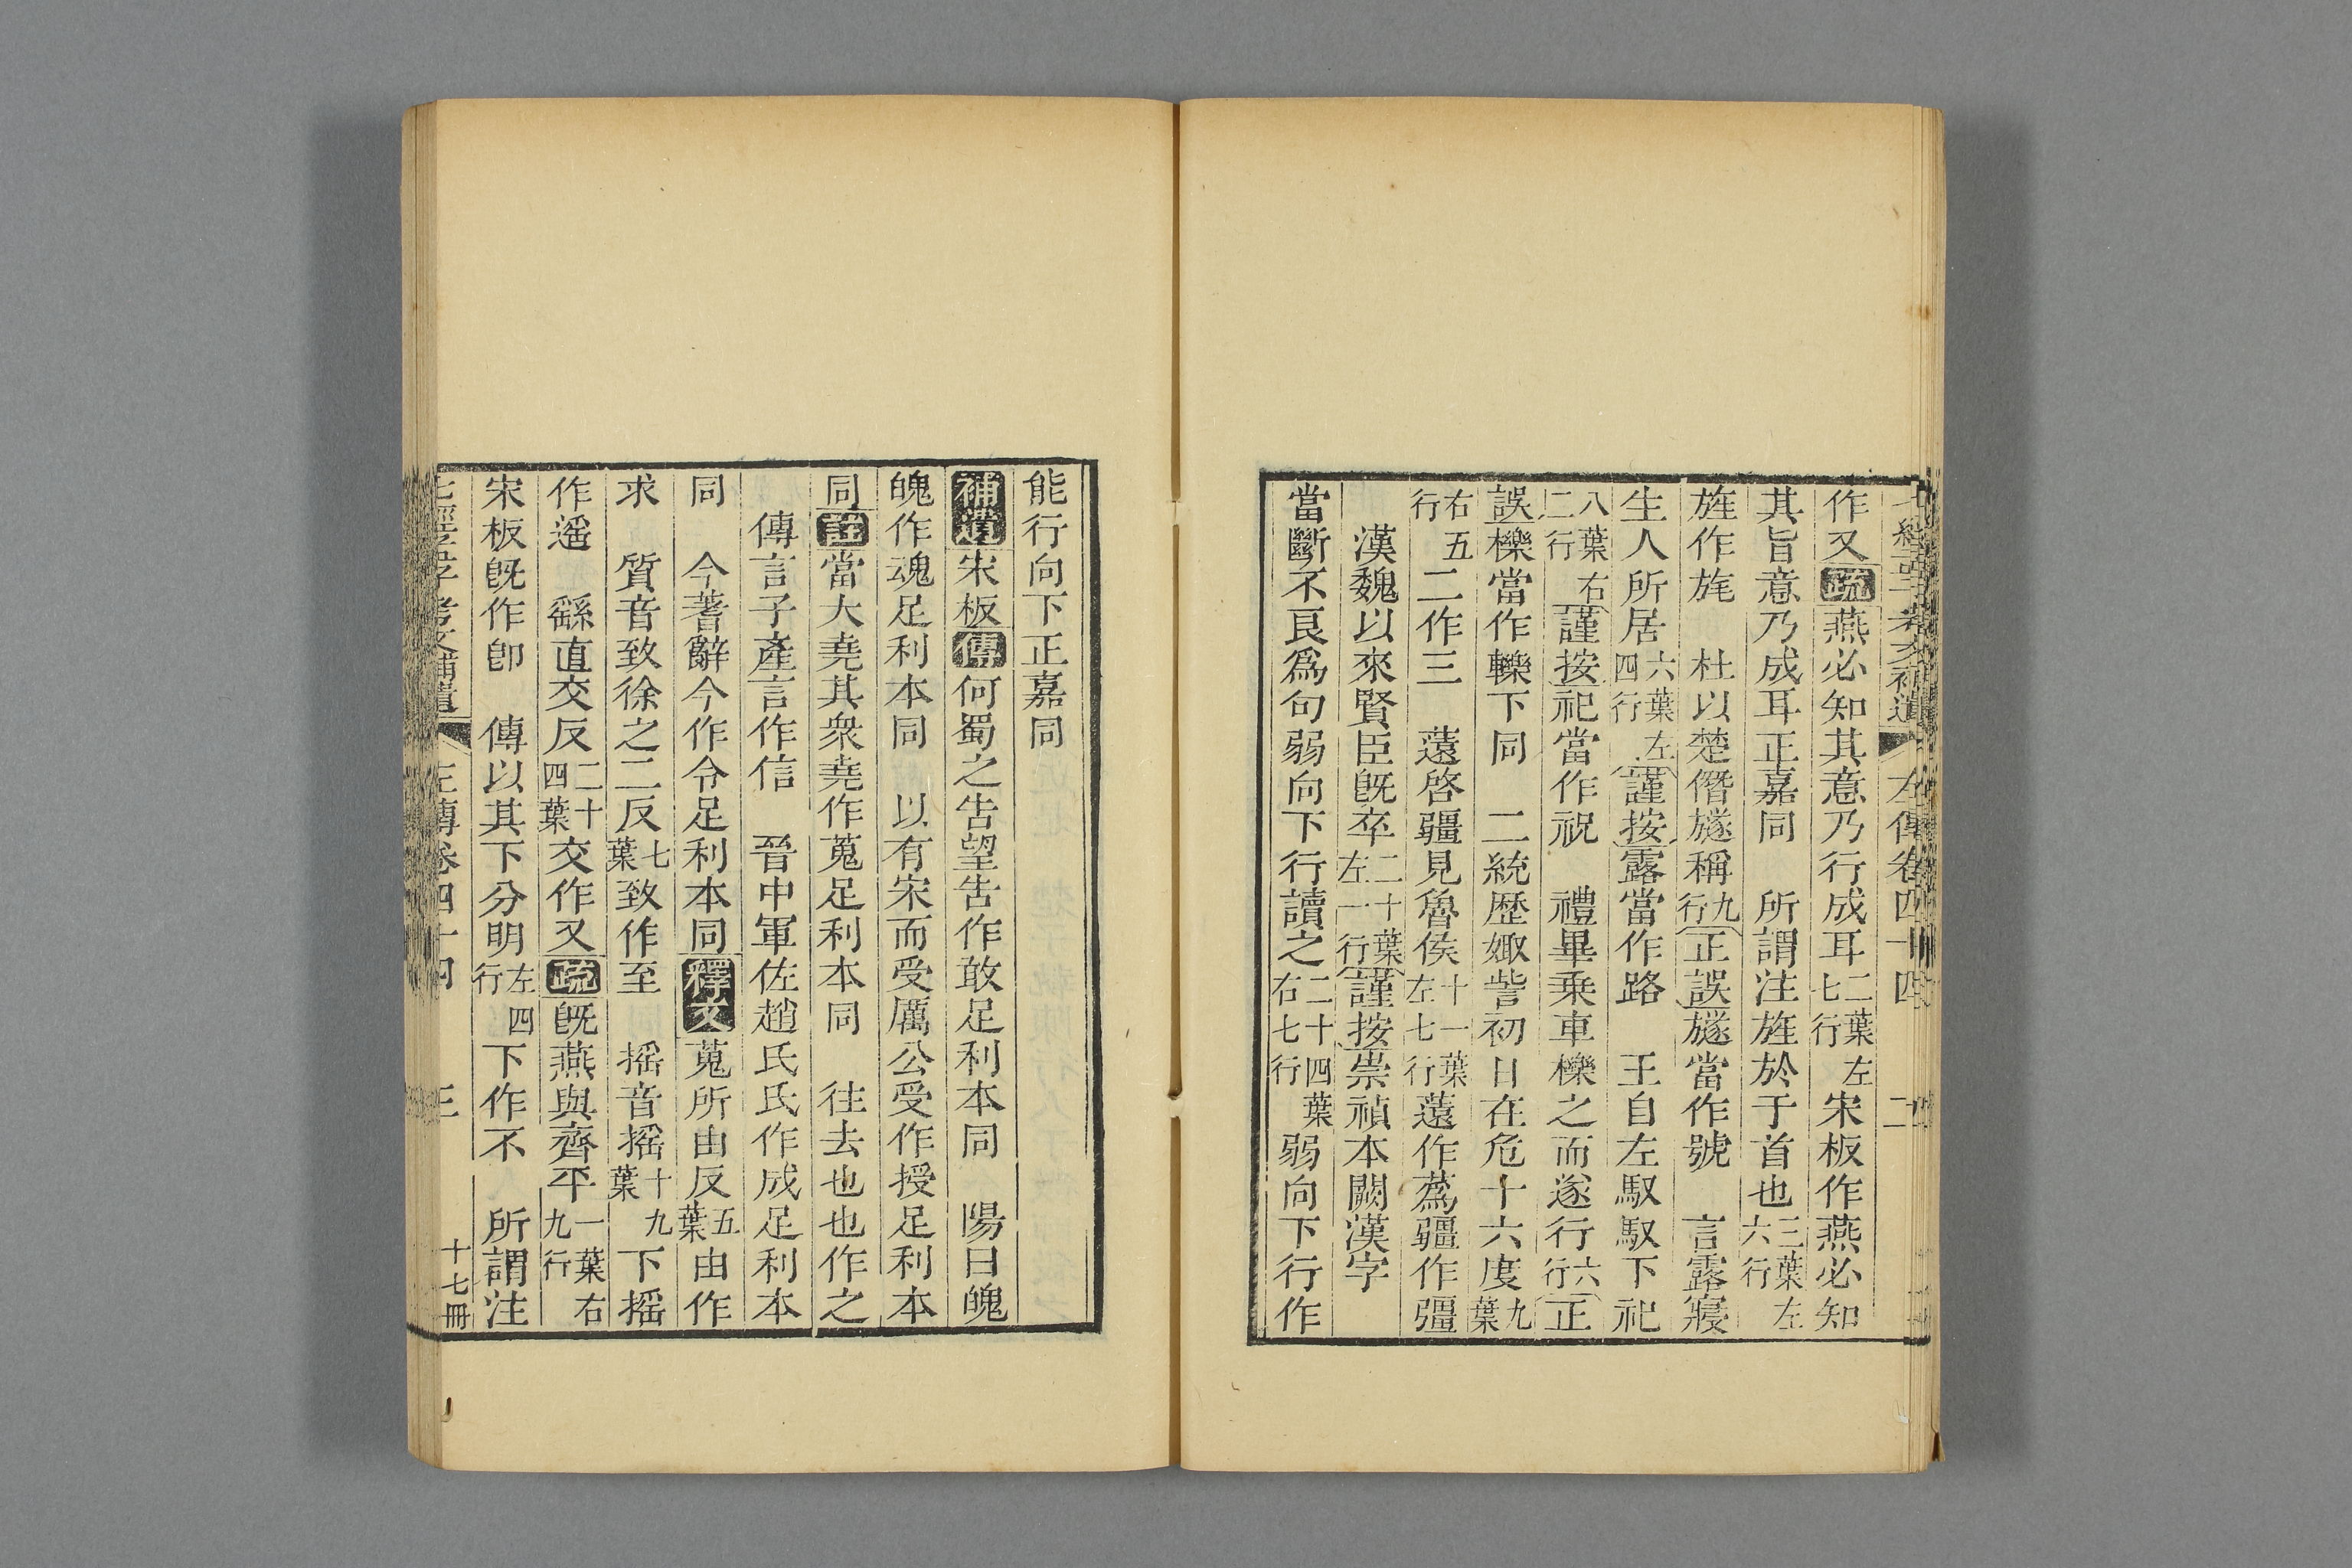 七經孟子考文補遺 左傳卷四十四 二
作又疏燕必知其意乃行成耳二葉左七行宋板作燕必知
其旨意乃成耳正嘉同 所謂注旌於于首也三葉左六行
旌作旄 杜以楚僭㯸稱九行正誤㯸當作號 言露寢
生人所居六葉左四行謹按露當作路 王自左馭馭下祀
八葉右二行謹按祀當作祝 禮畢乗車櫟之而遂行六行正
誤櫟當作轢下同 二統歴娵訾初日在危十六度九葉
右五行二作三 薳啓疆見魯侯十一葉左七行薳作蒍疆作彊
漢魏以來賢臣旣卒二十葉左一行謹按崇禎本闕漢字
當斷不良爲句弱向下行讀之二十四葉右七行弱向下行作
能行向下正嘉同
補遺宋板傳何蜀之告望告作敢足利本同 陽曰魄
魄作魂足利本同 以有宋而受厲公受作授足利本
同註當大蒐其衆堯作蒐足利本同 往去也也作之
傳言子產言作信 晉中軍佐趙氏氏作成足利本
同 今著辭今作令足利本同釋文蒐所由反五葉由作
求 質音致徐之二反七葉致作至 摇音摇十九葉下摇
作遥 繇直交反二十四葉交作又疏旣燕與齊平一葉右九行
宋板旣作卽 傳以其下分明左四行下作不 所謂注
七經孟子考文補遺 左傳卷四十四 三 十七冊